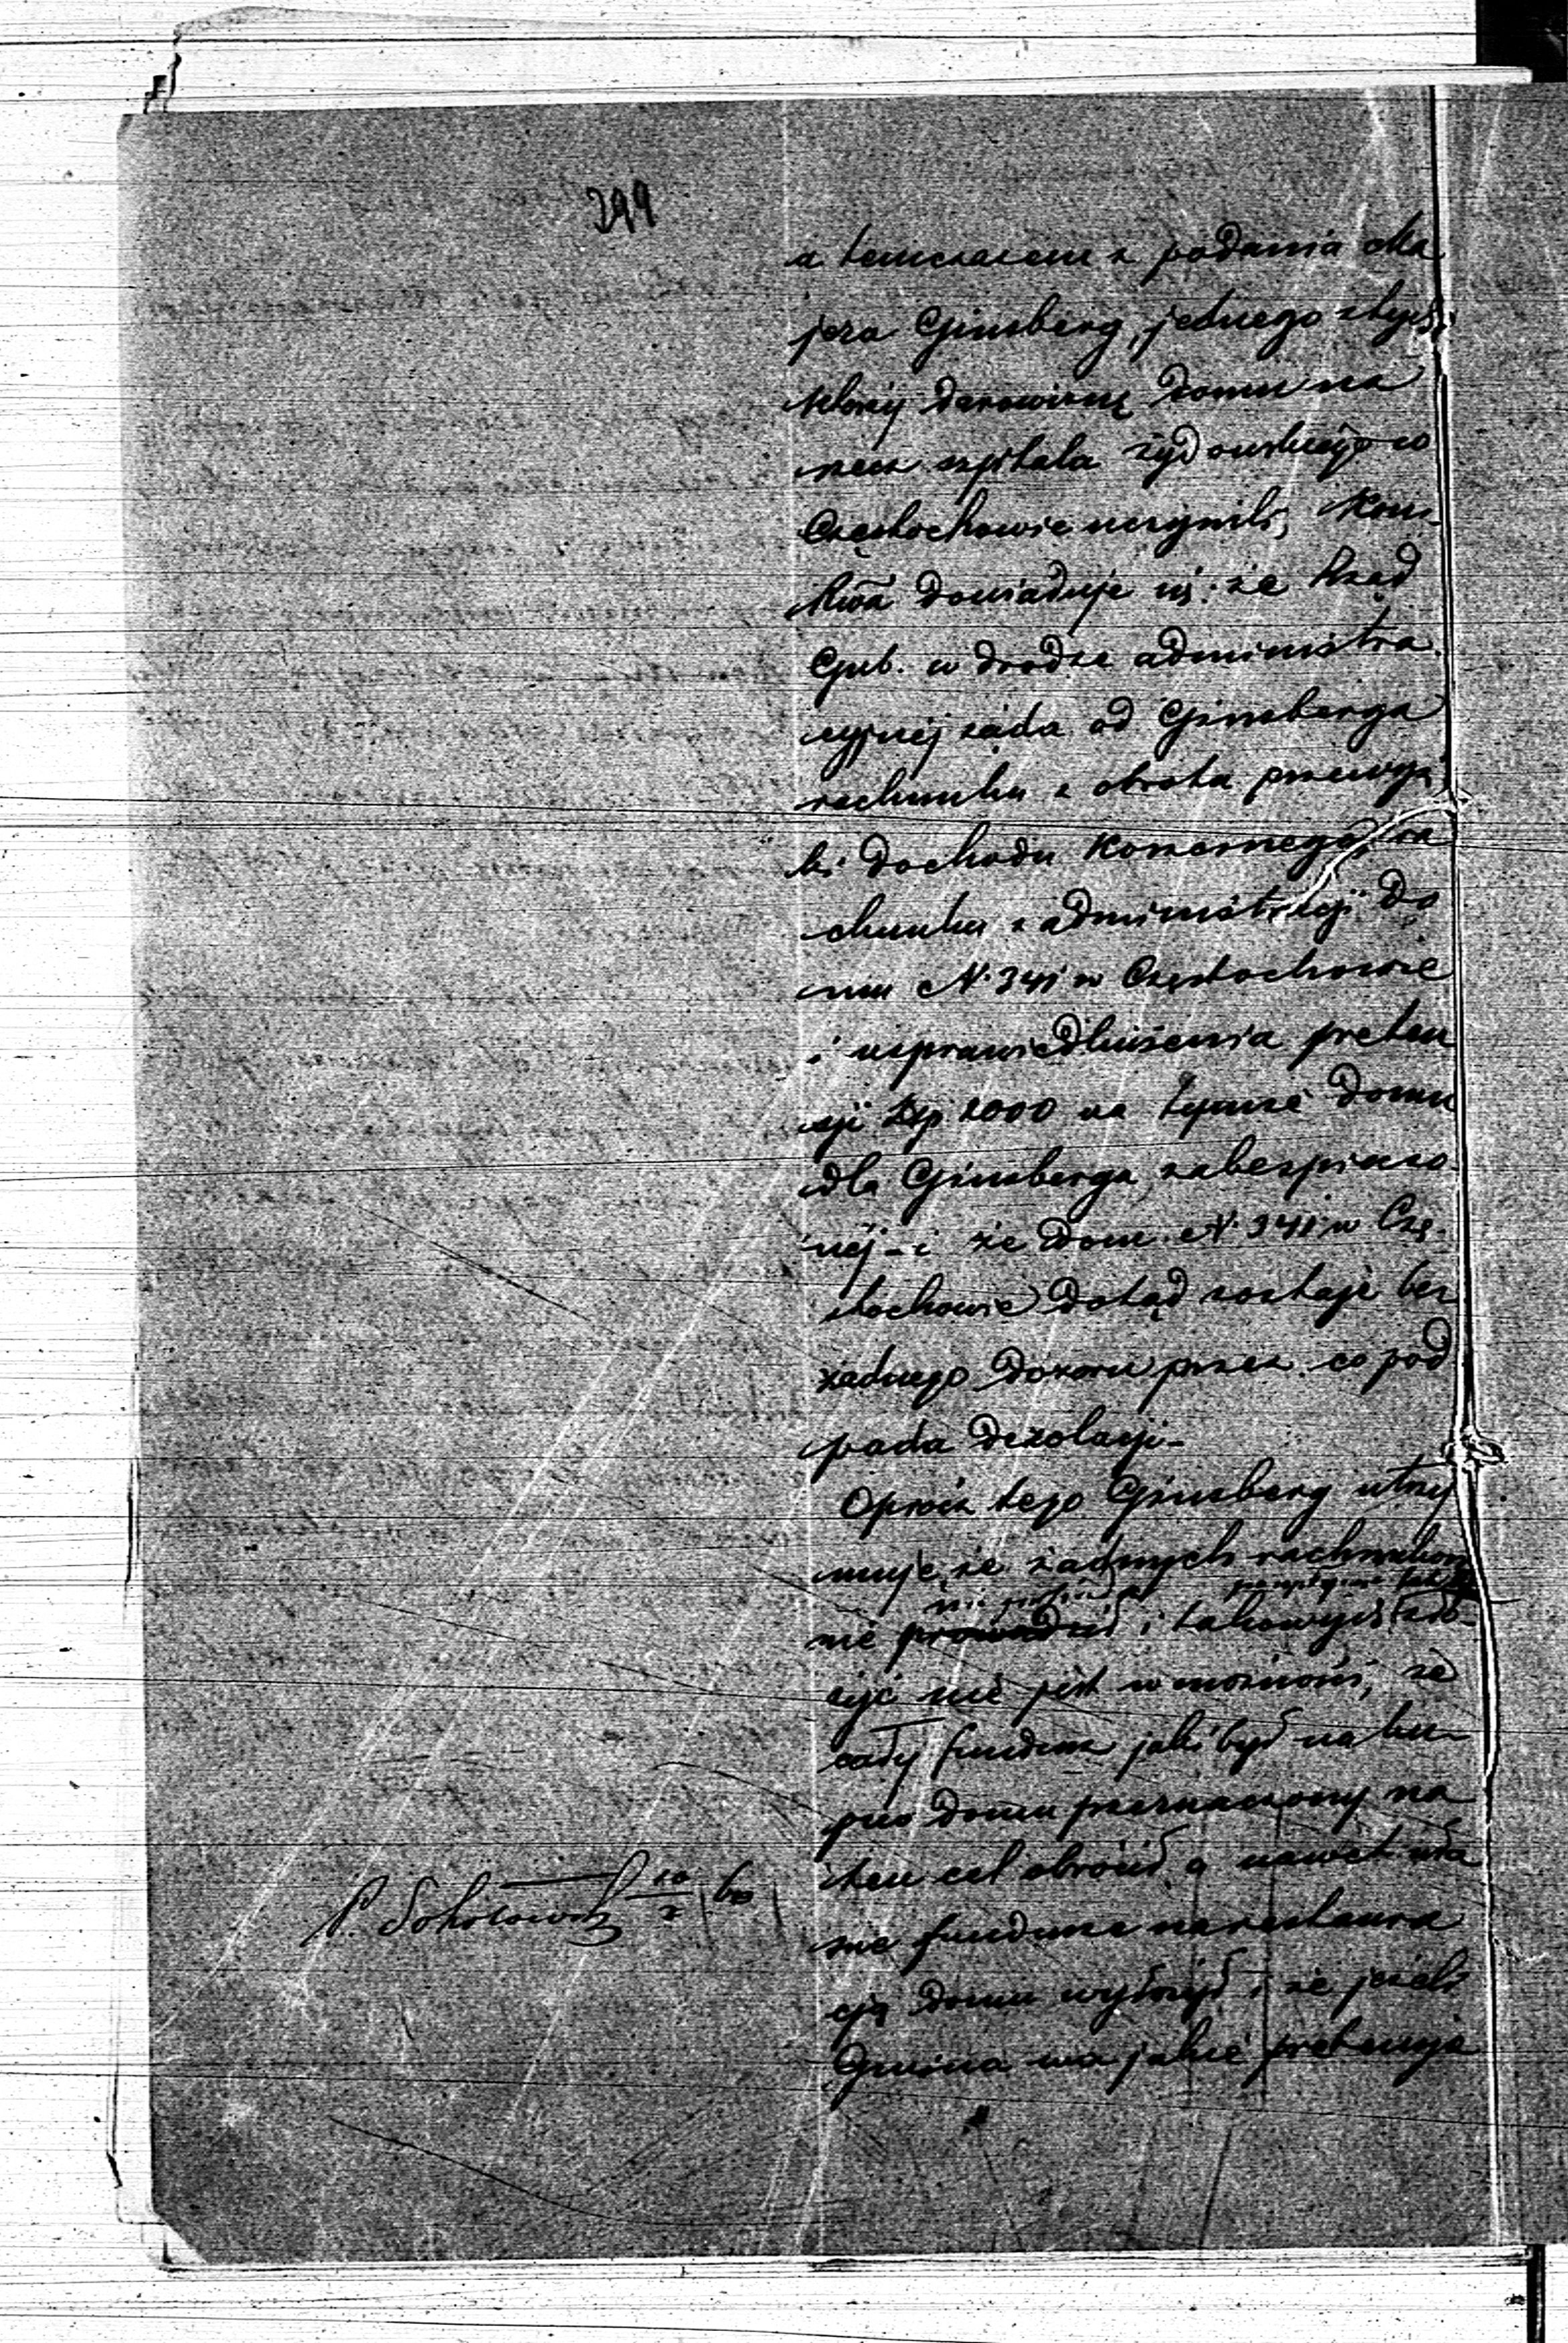 299
a tymczasem z podania Ma
jera Ginsberg, jednego z tych,
którzy darowiznę domu na
rzecz szpitala żydowskiego w
Częstochowie uczynili, Kom.
dowiaduje się: że Rząd
Gub. w drodze administra
cyjnej żąda od Ginsberga
rachunku z obrotu przewyż
ki dochodu Koszernego, ra
chunku z administracji do
mu N. 341 w Częstochowie
i usprawiedliwienia preten
sji Złp 2000 na tymże domu
dla Ginsberga zabezpieczo
nej – i że dom N. 341 w Czę
stochowie dotąd zostaje bez
żadnego dozoru przez co pod
pada dezolacji –
Oprócz tego Ginsberg utrzy
muje, że żadnych rachunków
nie prowadził i takowych zło
żyć nie jest w możności, że
cały fundusz jaki był na ku
pno domu przeznaczony na
ten cel obrócił, a nawet wła
sne fundusze na restaura
cją domu wyłożył i że jeżeli
Gmina ma jakie pretensje
Sokołowski